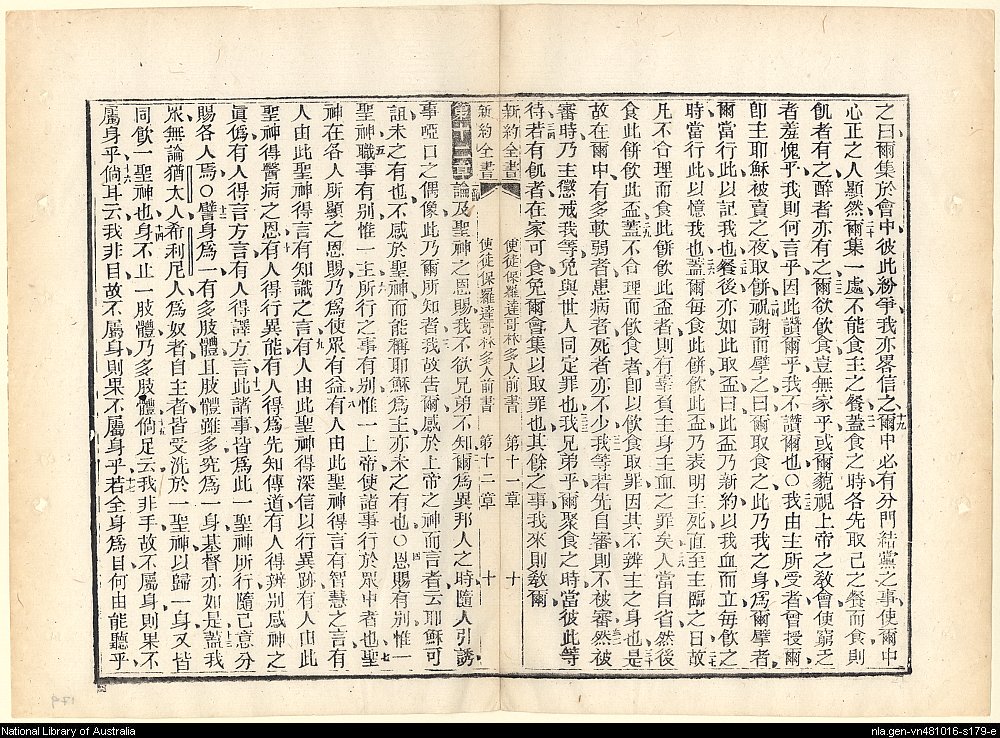 之曰爾集於會中彼此紛爭我亦畧信之爾中必有分門結黨之事使爾中
心正之人顯然爾集一處不能食主之餐蓋食之時各先取己之餐而食則
飢者有之醉者亦有之爾欲飲食豈無家乎或爾藐視上帝之敎會使窮乏
者羞愧乎我則何言乎因此讚爾乎我不讚爾也○我由主所受者曾授爾
卽主耶穌被賣之夜取餅祝謝而擘之曰爾取食之此乃我之身爲爾擘者
爾當行此以記我也餐後亦如此取盃曰此盃乃新約以我血而立每飲之
時當行此以憶我也蓋爾每食此餅飲此盃乃表明主死直至主臨之日故
凡不合理而食此餅飲此盃者則有辜負主身主血之罪矣人當自省然後
食此餅飲此盃蓋不合理而飲食者卽以飲食取罪因其不辨主之身也是
故在爾中有多軟弱者患病者死者亦不少我等若先自審則不被審然被
審時乃主懲戒我等免與世人同定罪也我兄弟乎爾聚食之時當彼此等
待若有飢者在家可食免爾會集以取罪也其餘之事我來則敎爾
新約全書 使徒保羅達哥林多人前書 第十一章 十
新約全書 使徒保羅達哥林多人前書 第十二章 十
第十二章論及聖神之恩賜我不欲兄弟不知爾爲異邦人之時隨人引誘
事啞口之偶像此乃爾所知者我故告爾感於上帝之神而言者云耶穌可
詛未之有也不感於聖神而能稱耶穌爲主亦未之有也○恩賜有別惟一
聖神職事有別惟一主所行之事有別惟一上帝使諸事行於眾中者也聖
神在各人所顯之恩賜乃爲使眾有益有人由此聖神得言有智慧之言有
人由此聖神得言有知識之言有人由此聖神得深信以行異跡有人由此
聖神得醫病之恩有人得行異能有人得爲先知傳道有人得辨別感神之
眞僞有人得言方言有人得譯方言此諸事皆爲此一聖神所行隨己意分
賜各人焉○譬身爲一有多肢體且肢體雖多究爲一身基督亦如是蓋我
眾無論猶太人希利尼人爲奴者自主者皆受洗於一聖神以歸一身又皆
同飲一聖神也身不止一肢體乃多肢體倘足云我非手故不屬身則果不
屬身乎倘耳云我非目故不屬身則果不屬身乎若全身爲目何由能聽乎
National Library of Australia
nla.gen-vn481016-s179-e